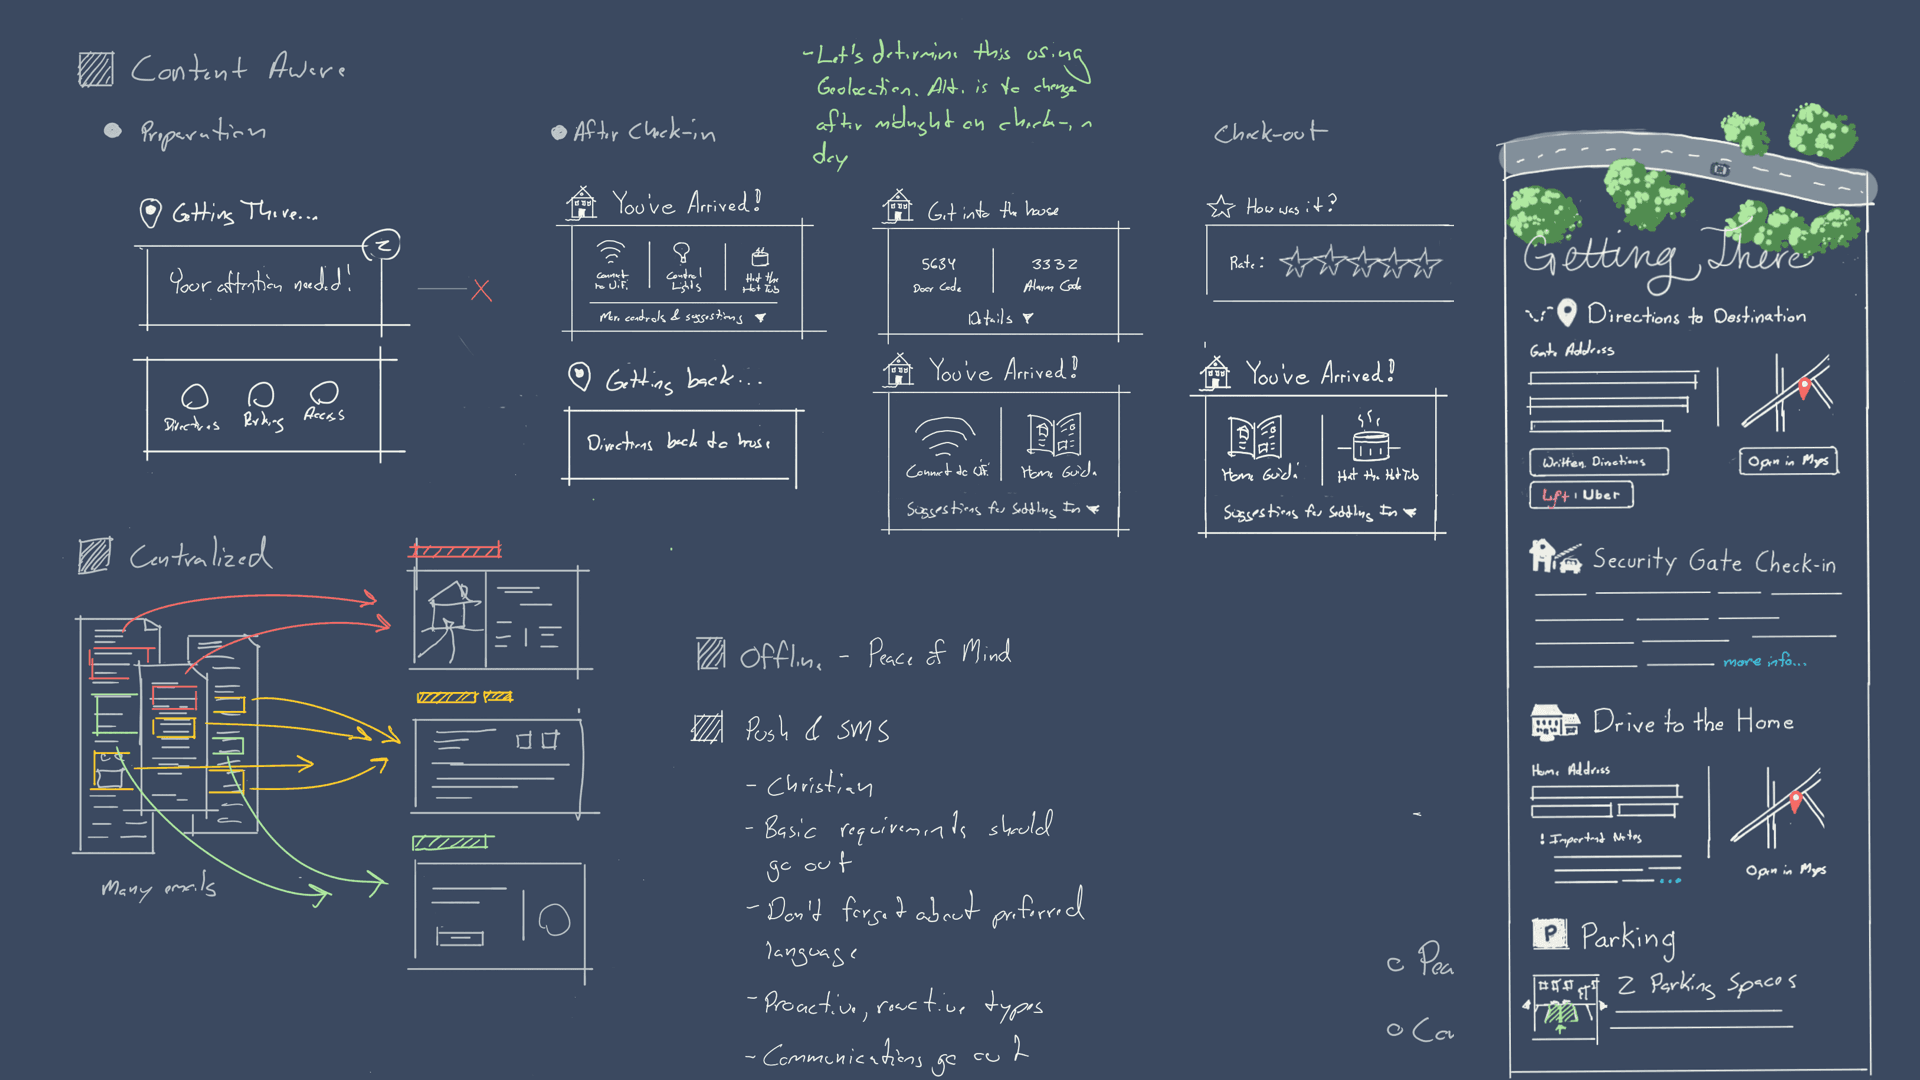 Content Aware
Preparation
Getting There...
2
Your attention needed!
X
Directions
Parking
Access
After Check-in
- Let's determine this using
Geolocation. Alt. is to change
after midnight on check-in
day
You've Arrived!
Connect to WiFi
Control Lights
Heat the Hot Tub
More controls & suggestions
Getting back...
Directions back to house
Get into the house
5634
Door Code
3332
Alarm Code
Details
You've Arrived!
Connect to Wifi
Home Guide
Suggestions for Settling In
Check-out
How was it?
Rate:
You've Arrived!
Home Guide
Heat the Hot Tub
Suggestions for Settling In
Getting There
Directions to Destination
Gate Address
Written Directions
Open in Maps
Lyft | Uber
Security Gate Check-in
more info...
Drive to the Home
Home Address
! Important Notes
Open in Maps
P
Parking
2 Parking Spaces
Centralized
Many emails
Offline - Peace of Mind
Push & SMS
- Christian
- Basic requirements should
go out
- Don't forget about preferred
language
- Proactive, reactive types
- Communications go out
Pea
Co